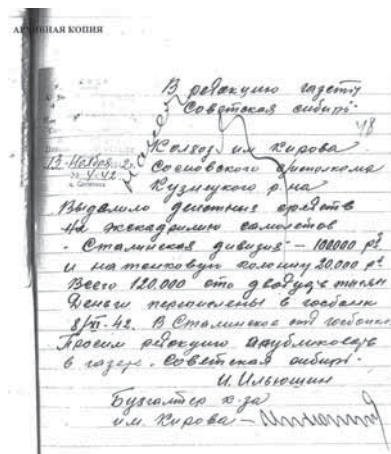 АРХИВНАЯ КОПИЯ
В редакцию газеты
Советская сибирь.
48
Колхоз им Кирова
13 Ноября
Сосновского
Кузнецкого р-на
Выделило денежных средств
на эскадрилию самолетов
- Сталинская дивизия - 100000 р.
и на танковую колонну 20.000 р.
Всего 120.000 сто двадцать тысяч
Деньги перечислены в госбанк
8/XI-42. В Сталинское отд госбанка
Просим редакцию опубликовать
в газете. Советская сибирь.
И. Ильюшин
Бухгалтер к-за
им. Кирова -